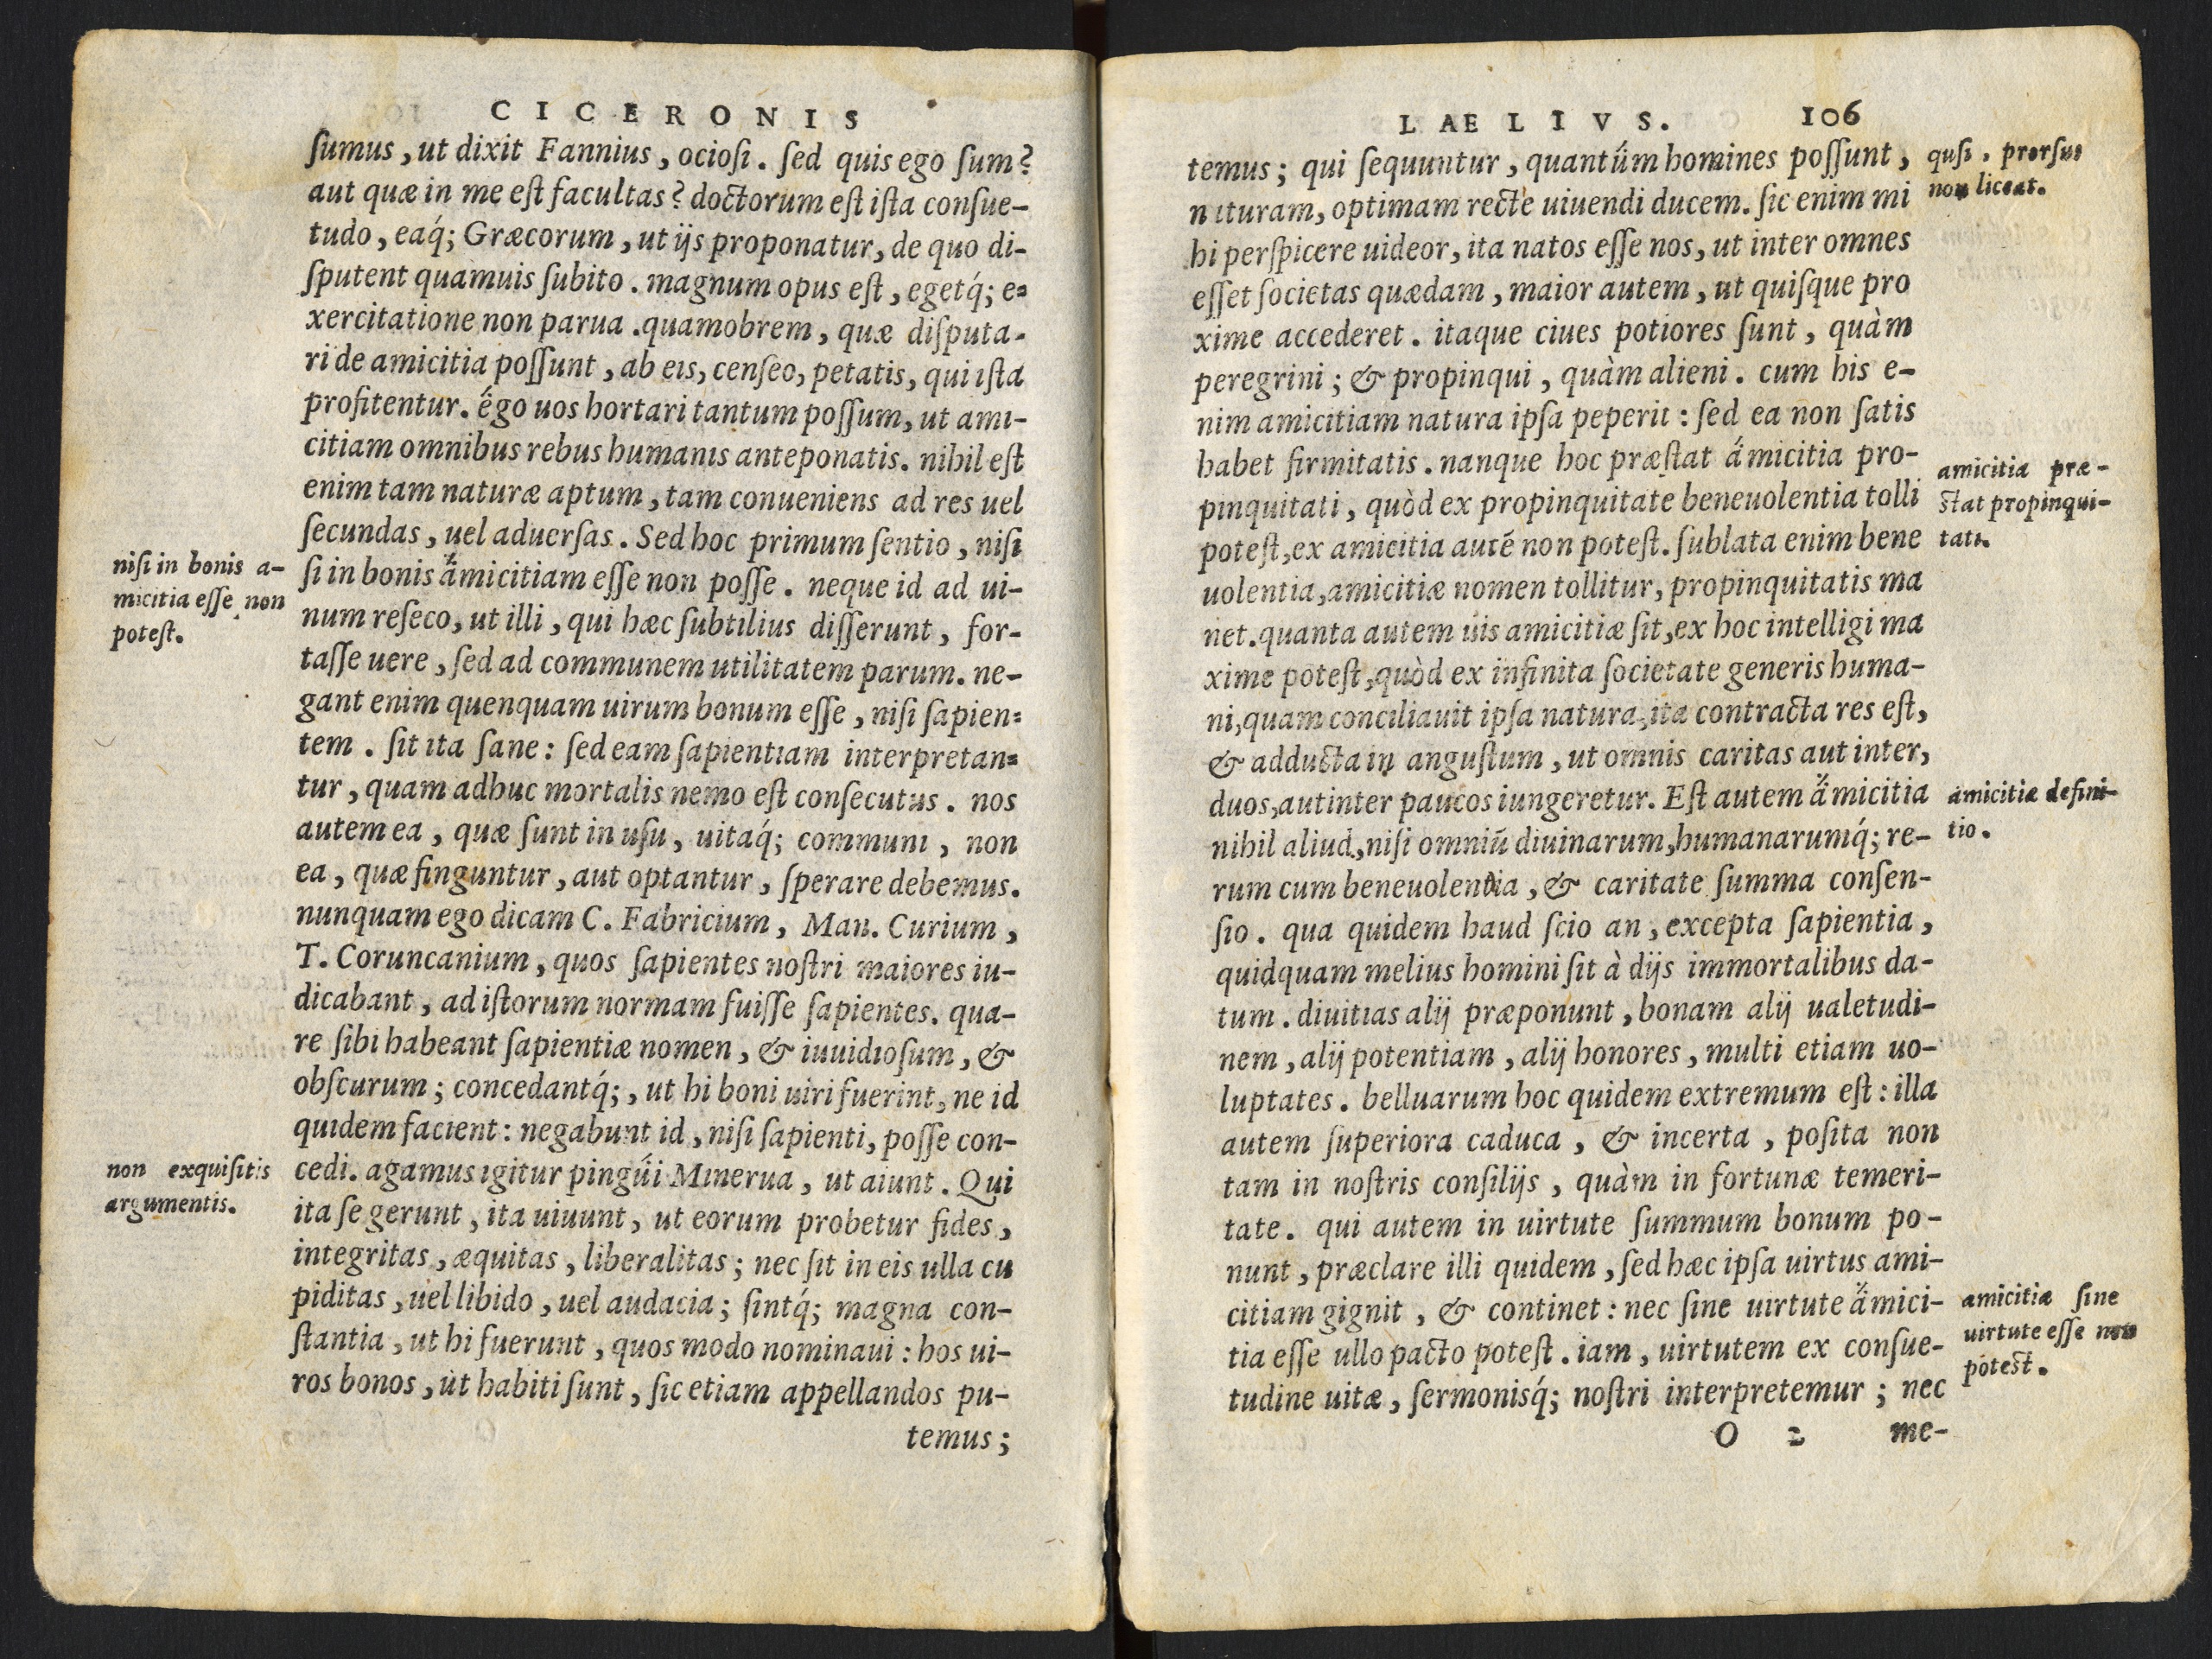 CICERONIS
ſumus, ut dixit Fannius, ocioſi. ſed quis ego ſum?
aut quæ in me eſt facultas? doctorum eſt iſta conſue-
tudo, eaq́; Græcorum, ut ijs proponatur, de quo di-
ſputent quamuis ſubito. magnum opus eſt, egetq́; e-
xercitatione non parua. quamobrem, quæ diſputa-
ri de amicitia poſſunt, ab eis, cenſeo, petatis, qui iſta
profitentur. égo uos hortari tantum poſſum, ut ami-
citiam omnibus rebus humanis anteponatis. nihil eſt
enim tam naturæ aptum, tam conueniens ad res uel
ſecundas, uel aduerſas. Sed hoc primum ſentio, niſi
ſi in bonis a̋micitiam eſſe non poſſe. neque id ad ui-
num reſeco, ut illi, qui hæc ſubtilius diſſerunt, for-
taſſe uere, ſed ad communem utilitatem parum. ne-
gant enim quenquam uirum bonum eſſe, niſi ſapien-
tem. ſit ita ſane: ſed eam ſapientiam interpretan-
tur, quam adhuc mortalis nemo eſt conſecutus. nos
autem ea, quæ ſunt in uſu, uitaq́; communi, non
ea, quæ finguntur, aut optantur, ſperare debemus.
nunquam ego dicam C. Fabricium, Man. Curium,
T. Coruncanium, quos ſapientes noſtri maiores iu-
dicabant, ad iſtorum normam fuiſſe ſapientes. qua-
re ſibi habeant ſapientiæ nomen, & iuuidioſum, &
obſcurum; concedantq́;, ut hi boni uiri fuerint, ne id
quidem facient: negabunt id, niſi ſapienti, poſſe con-
cedi. agamus igitur pingűi Minerua, ut aiunt. Qui
ita ſe gerunt, ita uiuunt, ut eorum probetur fides,
integritas, æquitas, liberalitas; nec ſit in eis ulla cu
piditas, uel libido, uel audacia; ſintq́; magna con-
ſtantia, ut hi fuerunt, quos modo nominaui: hos ui-
ros bonos, ùt habiti ſunt, ſic etiam appellandos pu-
temus;
niſi in bonis a-
micitia eſſe non
poteſt.
non exquiſitis
argumentis.
LAELIVS. 106
temus; qui ſequuntur, quantűm homines poſſunt,
nituram, optimam rectè uiuendi ducem. ſic enim mi
hi perſpicere uideor, ita natos eſſe nos, ut inter omnes
eſſet ſocietas quædam, maior autem, ut quiſque pro
xime accederet. itaque ciues potiores ſunt, quàm
peregrini; & propinqui, quàm alieni. cum his e-
nim amicitiam natura ipſa peperit: ſed ea non ſatis
habet firmitatis. nanque hoc præſtat a̋micitia pro-
pinquitati, quòd ex propinquitate beneuolentia tolli
poteſt, ex amicitia autē non poteſt. ſublata enim bene
uolentia, amicitiæ nomen tollitur, propinquitatis ma
net. quanta autem uis amicitiæ ſit, ex hoc intelligi ma
xime poteſt, quòd ex infinita ſocietate generis huma-
ni, quam conciliauit ipſa natura, ita contracta res eſt,
& adducta in anguſtum, ut omnis caritas aut inter,
duos, aut inter paucos iungeretur. Eſt autem a̋micitia
nihil aliud, niſi omniū diuinarum, humanarumq́; re-
rum cum beneuolentia, & caritate ſumma conſen-
ſio. qua quidem haud ſcio an, excepta ſapientia,
quidquam melius homini ſit à dijs immortalibus da-
tum. diuitias alij præponunt, bonam alij ualetudi-
nem, alij potentiam, alij honores, multi etiam uo-
luptates. belluarum hoc quidem extremum eſt: illa
autem ſuperiora caduca, & incerta, poſita non
tam in noſtris conſilijs, quàm in fortunæ temeri-
tate. qui autem in uirtute ſummum bonum po-
nunt, præclare illi quidem, ſed hæc ipſa uirtus ami-
citiam gignit, & continet: nec ſine uirtute a̋mici-
tia eſſe ullo pacto poteſt. iam, uirtutem ex conſue-
tudine uitæ, ſermonisq́; noſtri interpretemur; nec
O 2 me-
quſi, prorſus
non liceat.
amicitia præ-
ſtat propinqui-
tati.
amicitiæ defini-
tio.
amicitia ſine
uirtute eſſe non
poteſt.